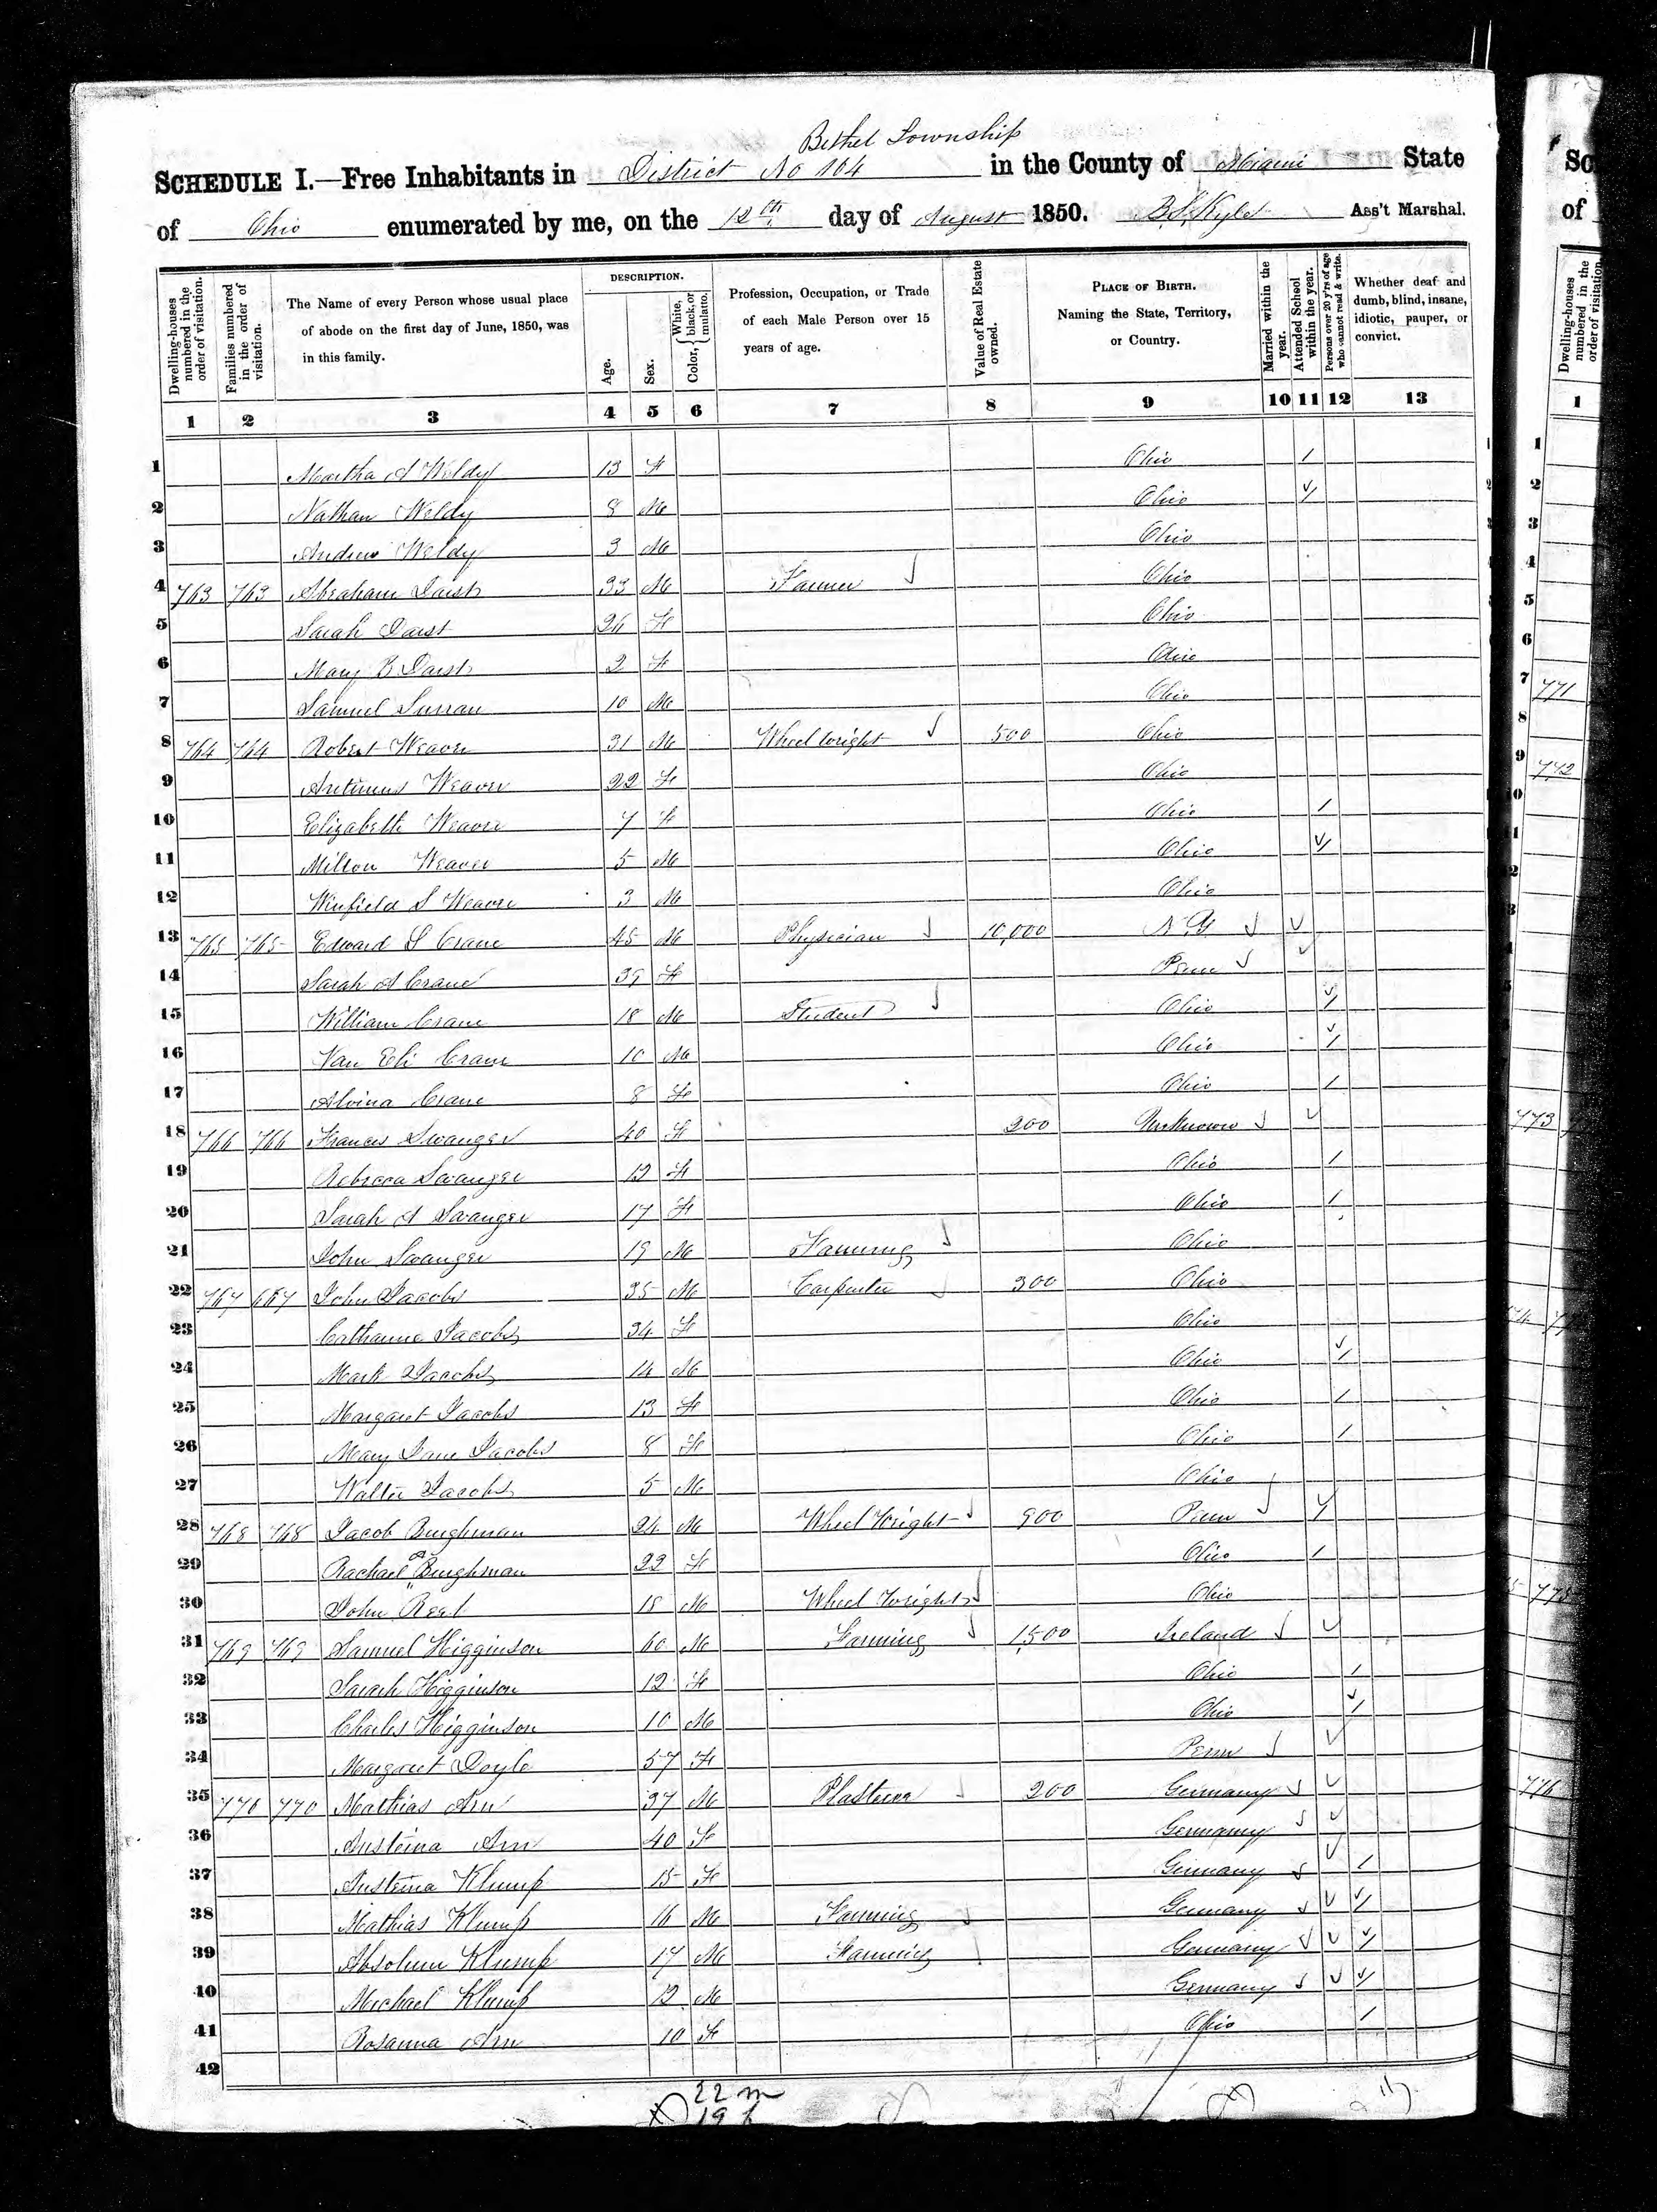 Bethel Township
SCHEDULE I.—Free Inhabitants in District No 104 in the County of Miami State
of Ohio enumerated by me, on the 12th day of August 1850. Ass't Marshal.
Dwelling-houses numbered in the order of visitation. Families numbered in the order of visitation. The Name of every Person whose usual place of abode on the first day of June, 1850, was in this family. DESCRIPTION. Age. Sex. Color, { White, black, or mulatto. Profession, Occupation, or Trade of each Male Person over 15 years of age. Value of Real Estate owned. PLACE OF BIRTH. Naming the State, Territory, or Country. Married within the year. Attended School within the year. Persons over 20 y'rs of age who cannot read & write. Whether deaf and dumb, blind, insane, idiotic, pauper, or convict.
1 2 3 4 5 6 7 8 9 10 11 12 13
1 Martha A Weldy 13 F Ohio /
2 Nathan Weldy 8 M Ohio /
3 Andrew Weldy 3 M Ohio
4 763 763 Abraham Darst 33 M Farmer Ohio
5 Sarah Darst 26 F Ohio
6 Mary B Darst 2 F Ohio
7 Samuel 10 M Ohio
8 764 764 Robert Weaver 31 M Wheel wright 500 Ohio
9 Weaver 22 F Ohio
10 Elizabeth Weaver 7 F Ohio /
11 Milton Weaver 5 M Ohio /
12 Winfield S Weaver 3 M Ohio
13 765 765 Edward L Crane 45 M Physician 10,000 N.Y
14 Sarah A Crane 39 F Penn
15 William Crane 18 M Student Ohio /
16 Van Eli Crane 10 M Ohio /
17 Alvina Crane 8 F Ohio /
18 766 766 Frances Swanger 40 F 200 Unknown
19 Rebecca Swanger 12 F Ohio /
20 Sarah A Swanger 17 F Ohio /
21 John Swanger 19 M Farming Ohio
22 767 667 John Jacobs 35 M Carpenter 300 Ohio
23 Catharine Jacobs 34 F Ohio
24 Mark Jacobs 14 M Ohio /
25 Margaret Jacobs 13 F Ohio /
26 Mary Jane Jacobs 8 F Ohio /
27 Walter Jacobs 5 M Ohio
28 768 768 Jacob Burghman 24 M Wheel Wright 900 Penn /
29 Rachael Burghman 22 F Ohio /
30 John 18 M Wheel Wright Ohio
31 769 769 Samuel Higginson 60 M Farming 1,500 Ireland
32 Sarah Higginson 12 F Ohio /
33 Charles Higginson 10 M Ohio /
34 Margaret Doyle 57 F Penn
35 770 770 Mathias Arn 37 M Plasterer 200 Germany
36 Austeina Arn 40 F Germany
37 Austeina Klump 15 F Germany /
38 Mathias Klump 16 M Farming Germany /
39 Absolum Klump 17 M Farming Germany /
40 Michael Klump 12 M Germany /
41 Rosanna Arn 10 F Ohio /
42
22 m
19 f
771
772
773
775
776